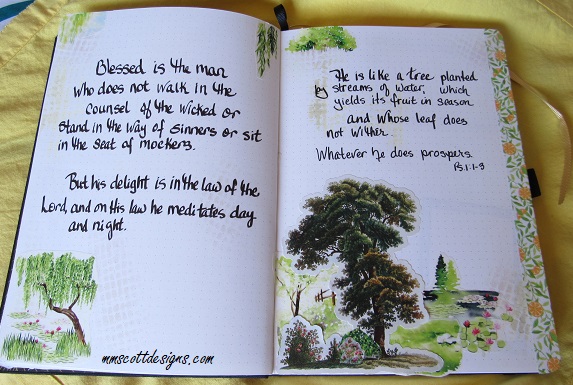 Blessed is the man
who does not walk in the
counsel of the wicked or
stand in the way of sinners or sit
in the seat of mockers.
But his delight is in the law of the
Lord, and on His law he meditates day
and night.
mmscottdesigns.com
He is like a tree planted
by streams of water, which
yields its fruit in season
and whose leaf does
not wither.
Whatever he does prospers.
Ps. 1:1-3